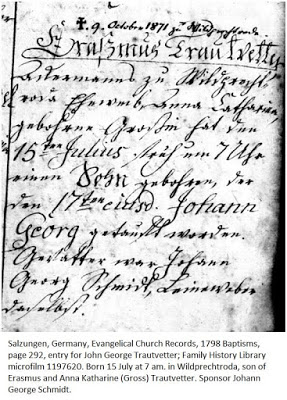 ✝ 9. October 1871 zu Wildprechtroda
Eraßmus Trautvetter
Ackermanns zu Wildprecht-
roda Eheweib, Anna Catharina,
gebohrne Großin hat den
15ten Julius früh um 7 Uhr
einen Sohn gebohren, der
den 17ten eiusd. Johann
Georg getauft worden.
Gevatter war Johann
Georg Schmidt, Leineweber
daselbst.
Salzungen, Germany, Evangelical Church Records, 1798 Baptisms,
page 292, entry for John George Trautvetter; Family History Library
microfilm 1197620. Born 15 July at 7 am. in Wildprechtroda, son of
Erasmus and Anna Katharine (Gross) Trautvetter. Sponsor Johann
George Schmidt.